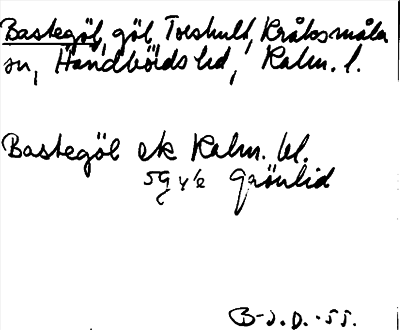 Bastegöl, göl, Toeshult, Kråksmåla
sn, Handbörds hd, Kalm. l.
Bastegöl ek Kalm. bl.
59 v ½ Grönlid
B-J.D.-55.